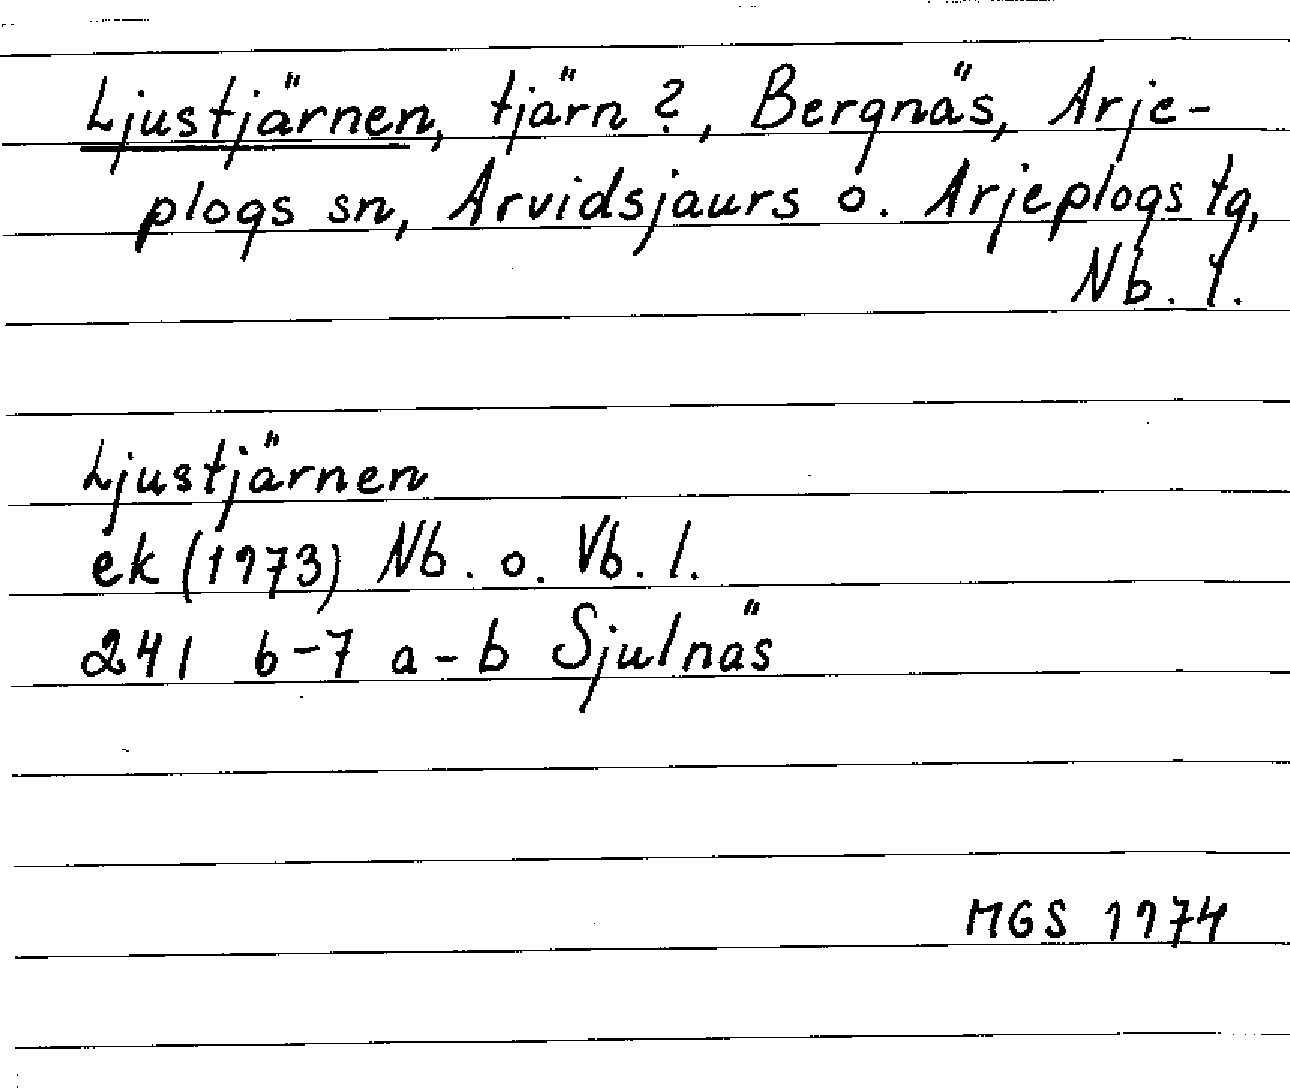 Ljustjärnen, tjärn?, Bergnäs, Arje-
plogs sn, Arvidsjaurs o. Arjeplogs tg,
Nb. l.
Ljustjärnen
ek (1973) Nb. o. Vb. l.
241 6-7 a-b Sjulnäs
MGS 1974